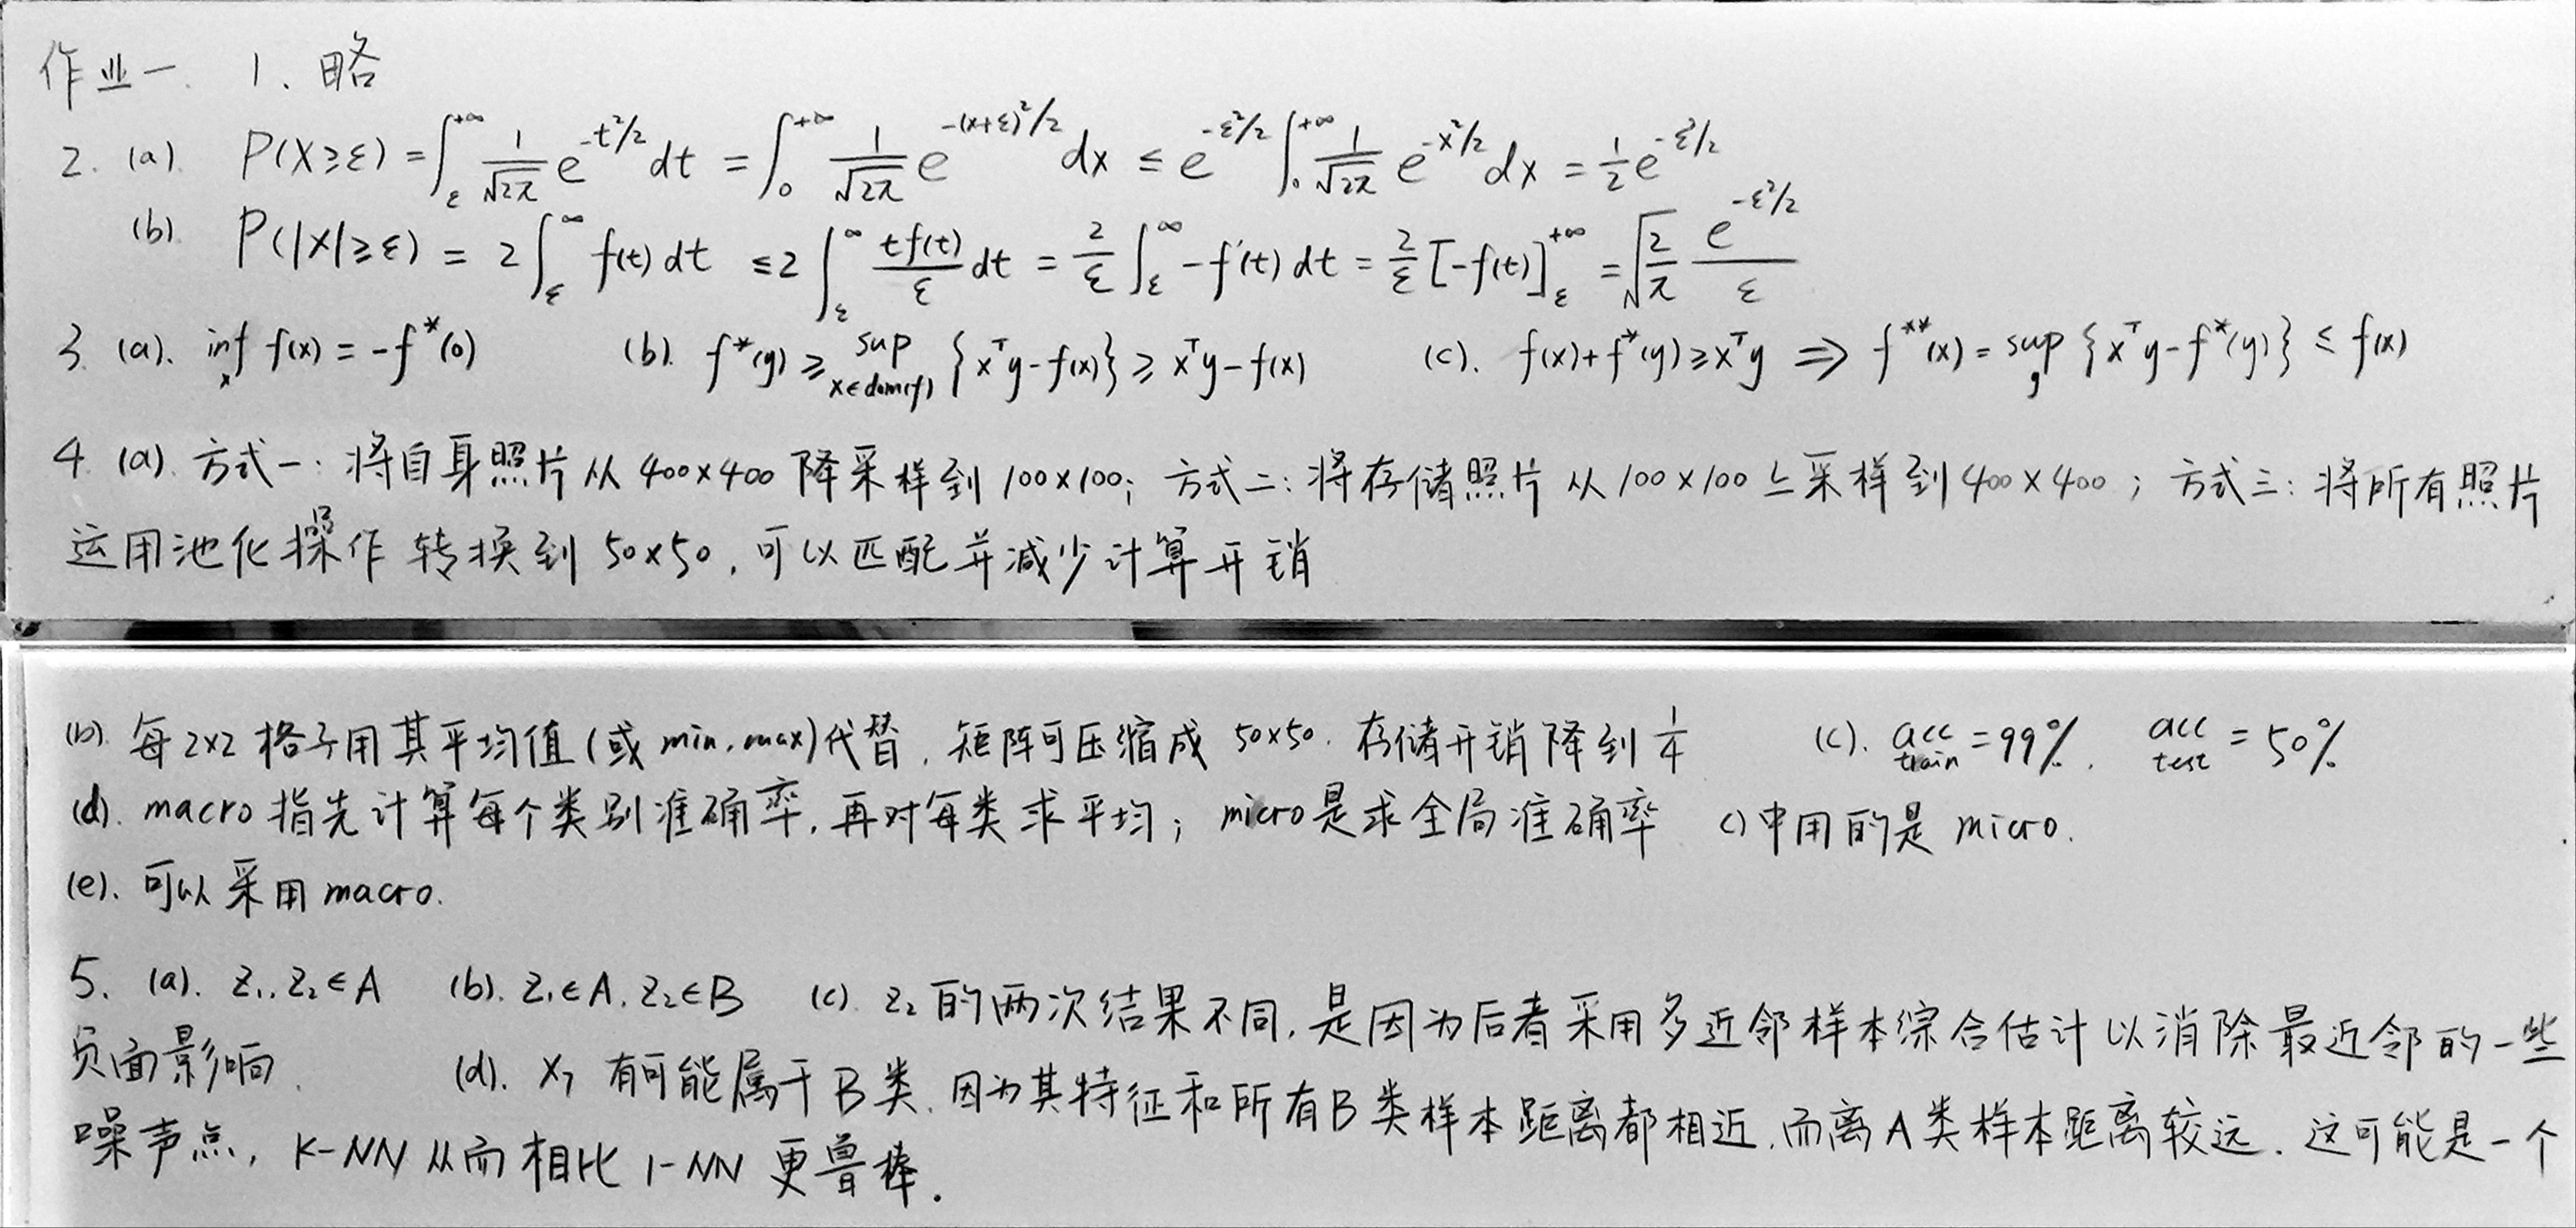 作业一. 1. 略
2. (a). P(X≥ε) = ∫_ε^{+∞} 1/√(2π) e^{-t²/2} dt = ∫_0^{+∞} 1/√(2π) e^{-(x+ε)²/2} dx ≤ e^{-ε²/2} ∫_0^{+∞} 1/√(2π) e^{-x²/2} dx = 1/2 e^{-ε²/2}
(b). P(|X|≥ε) = 2∫_ε^∞ f(t) dt ≤ 2∫_ε^∞ tf(t)/ε dt = 2/ε ∫_ε^∞ -f'(t) dt = 2/ε [-f(t)]_ε^{+∞} = √(2/π) e^{-ε²/2}/ε
3 (a). inf_x f(x) = -f*(0) (b). f*(y) ≥ sup_{x∈dom(f)} {x^T y - f(x)} ≥ x^T y - f(x) (c). f(x)+f*(y) ≥ x^T y ⇒ f**(x) = sup_y {x^T y - f*(y)} ≤ f(x)
4 (a). 方式一: 将自身照片从 400×400 降采样到 100×100; 方式二: 将存储照片从 100×100 上采样到 400×400; 方式三: 将所有照片
运用池化操作转换到 50×50, 可以匹配并减少计算开销
(b). 每2×2格子用其平均值(或 min, max)代替, 矩阵可压缩成 50×50. 存储开销降到 1/4 (c). acc_train = 99%. acc_test = 50%.
(d). macro 指先计算每个类别准确率, 再对每类求平均; micro是求全局准确率 c)中用的是 micro.
(e). 可以采用 macro.
5. (a). z₁, z₂∈A (b). z₁∈A, z₂∈B (c). z₂ 的两次结果不同, 是因为后者采用多近邻样本综合估计以消除最近邻的一些
负面影响. (d). x₇ 有可能属于B类, 因为其特征和所有B类样本距离都相近, 而离A类样本距离较远. 这可能是一个
噪声点, K-NN 从而相比 1-NN 更鲁棒.